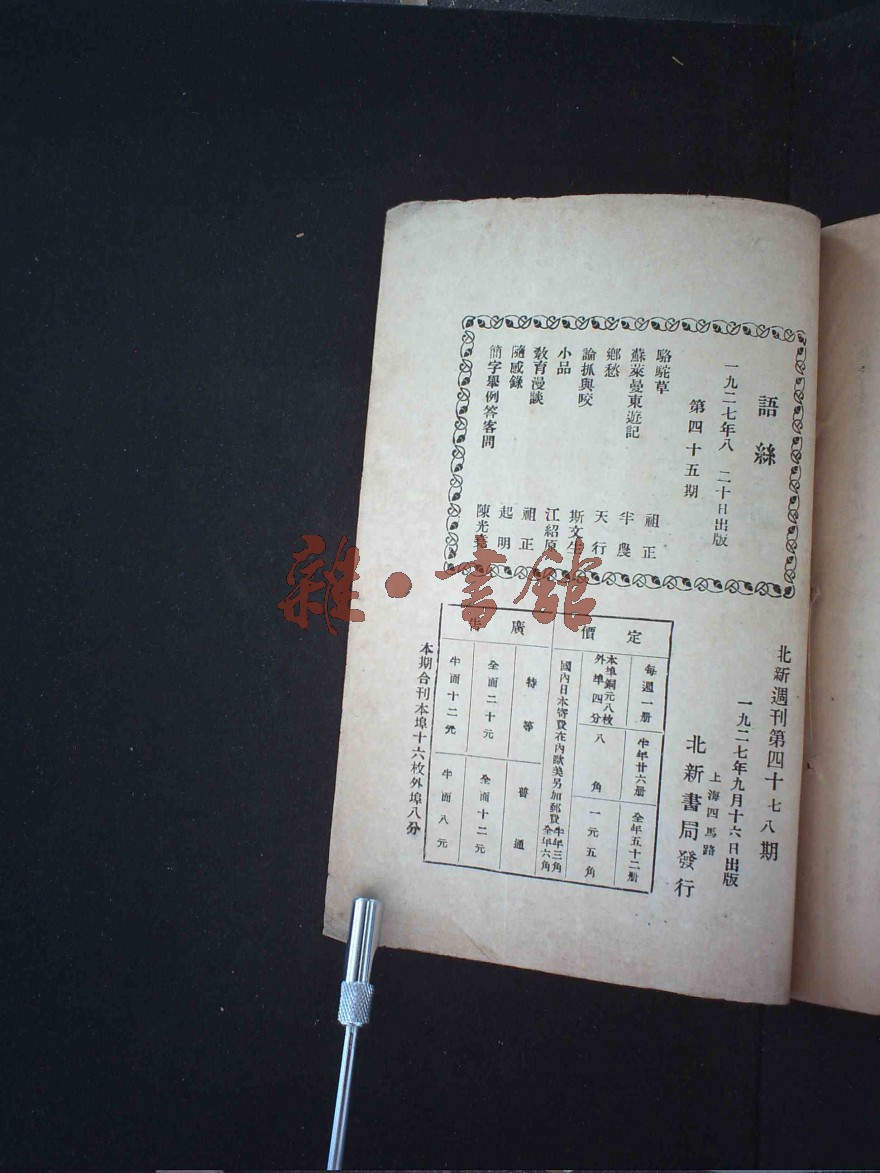 語絲
一九二七年八 二十日出版
第四十五期
駱駝草 祖正
蘇萊曼東遊記 半農
鄉愁 天行
論抓與咬 斯文生
小品 江紹原
教育漫談 祖正
隨感錄 起明
簡字舉例答客問 陳光堯
北新週刊第四十七八期
一九二七年九月十六日出版
上海四馬路
北新書局發行
定價
每週一册 半年廿六册 全年五十二册
本埠銅元八枚 外埠四分 八角 一元五角
國內日本寄費在內歐美另加郵費半年三角全年六角
廣告
特等 普通
全面二十元 全面十二元
半面十二元 半面八元
本期合刊本埠十六枚外埠八分
雜·書館